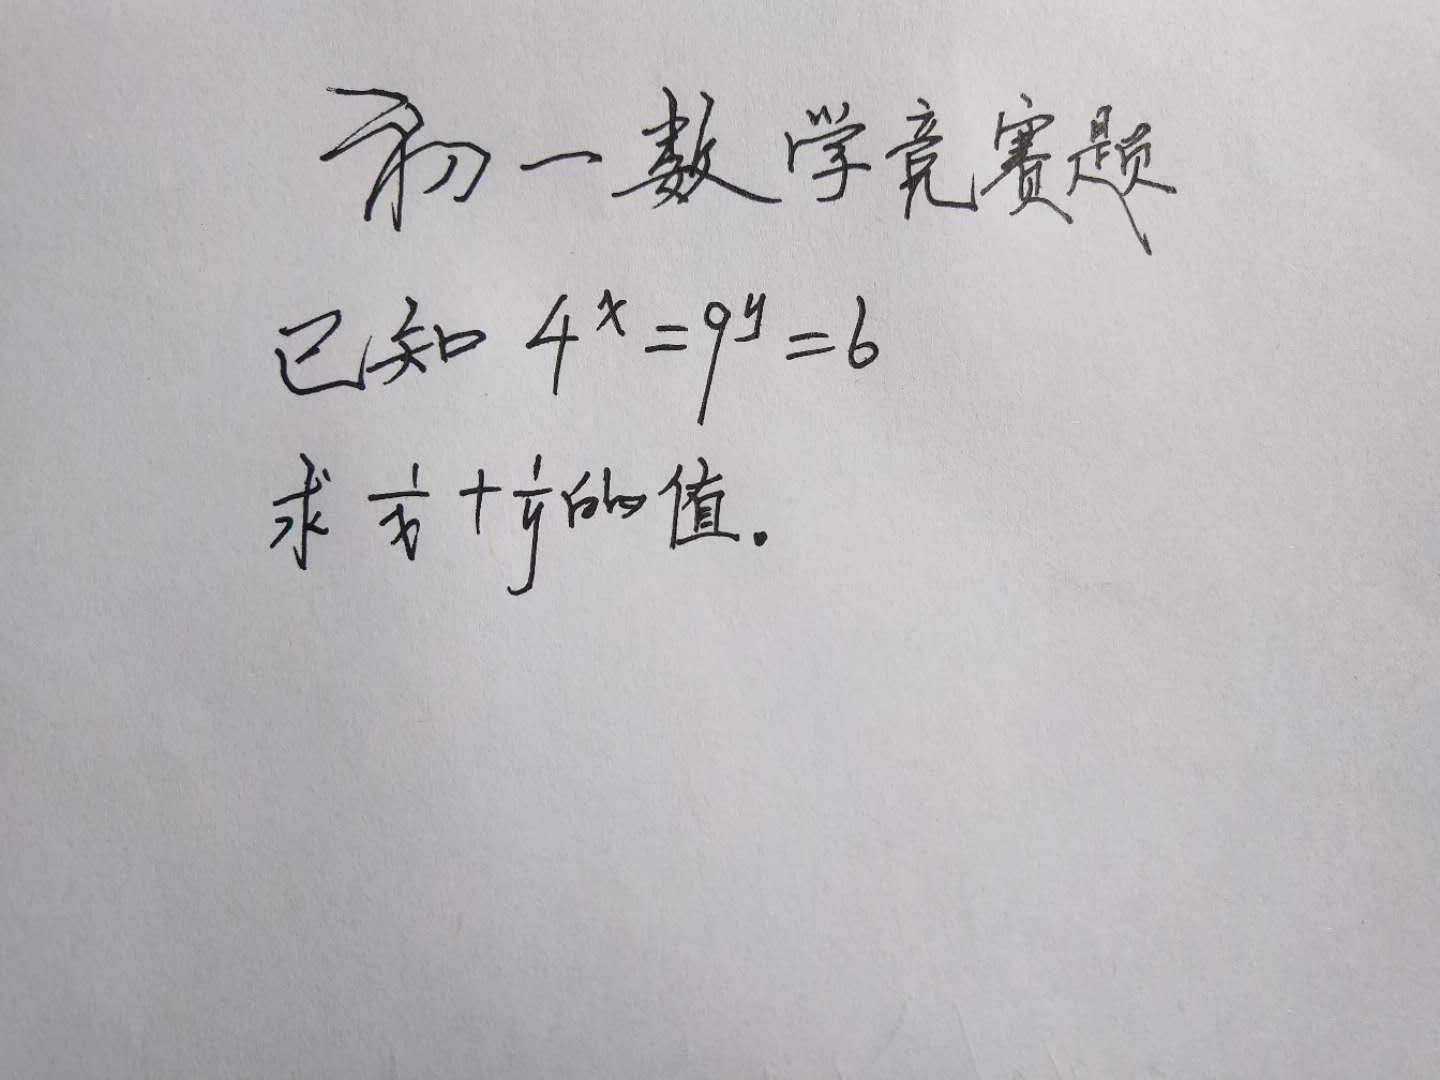 初一数学竞赛题
已知 4ˣ=9ʸ=6
求 1/x + 1/y 的值.